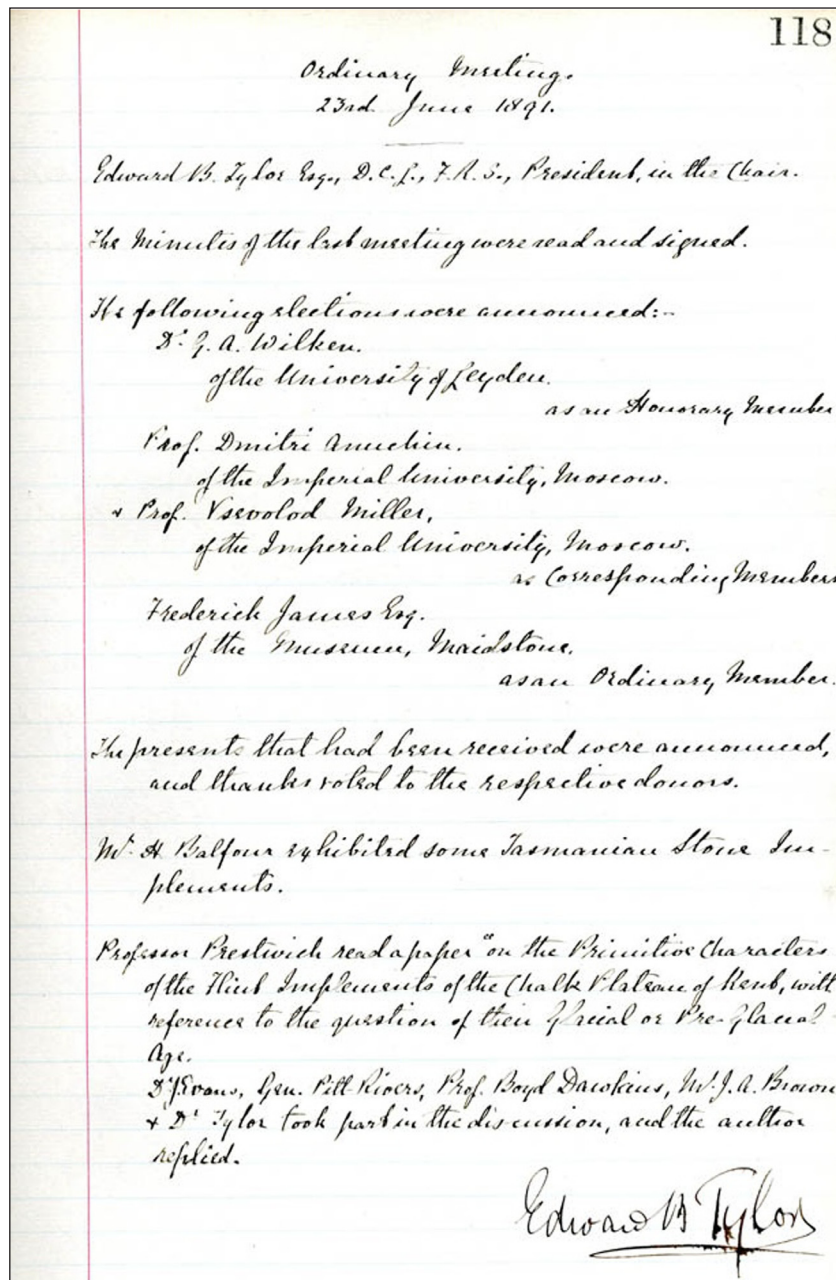 118
Ordinary Meeting.
23rd June 1891.
Edward B. Tylor Esq., D.C.L., F.R.S., President, in the Chair.
The Minutes of the last meeting were read and signed.
The following elections were announced:-
Dr G. A. Wilken.
of the University of Leyden.
as an Honorary Member
Prof. Dmitri Anuchin.
of the Imperial University, Moscow.
& Prof. Vsevolod Miller,
of the Imperial University, Moscow.
as Corresponding Members
Frederick James Esq.
of the Museum, Maidstone.
as an Ordinary Member.
The presents that had been received were announced,
and thanks voted to the respective donors.
Mr H Balfour exhibited some Tasmanian Stone Im-
plements.
Professor Prestwich read a paper "on the Primitive Characters
of the Flint Implements of the Chalk Plateau of Kent, with
reference to the question of their Glacial or Pre-Glacial
Age.
Dr J Evans, Gen. Pitt Rivers, Prof. Boyd Dawkins, Mr. J. A. Brown
& Dr Tylor took part in the discussion, and the author
replied.
Edward B Tylor